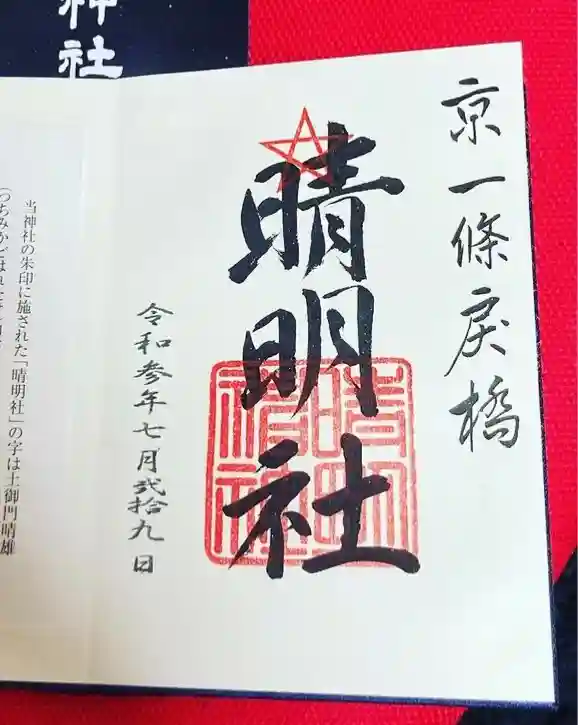 神社
京一條戻橋
晴明社
晴明神社
令和参年七月弐拾九日
当神社の朱印に施された「晴明社」の字は土御門晴雄